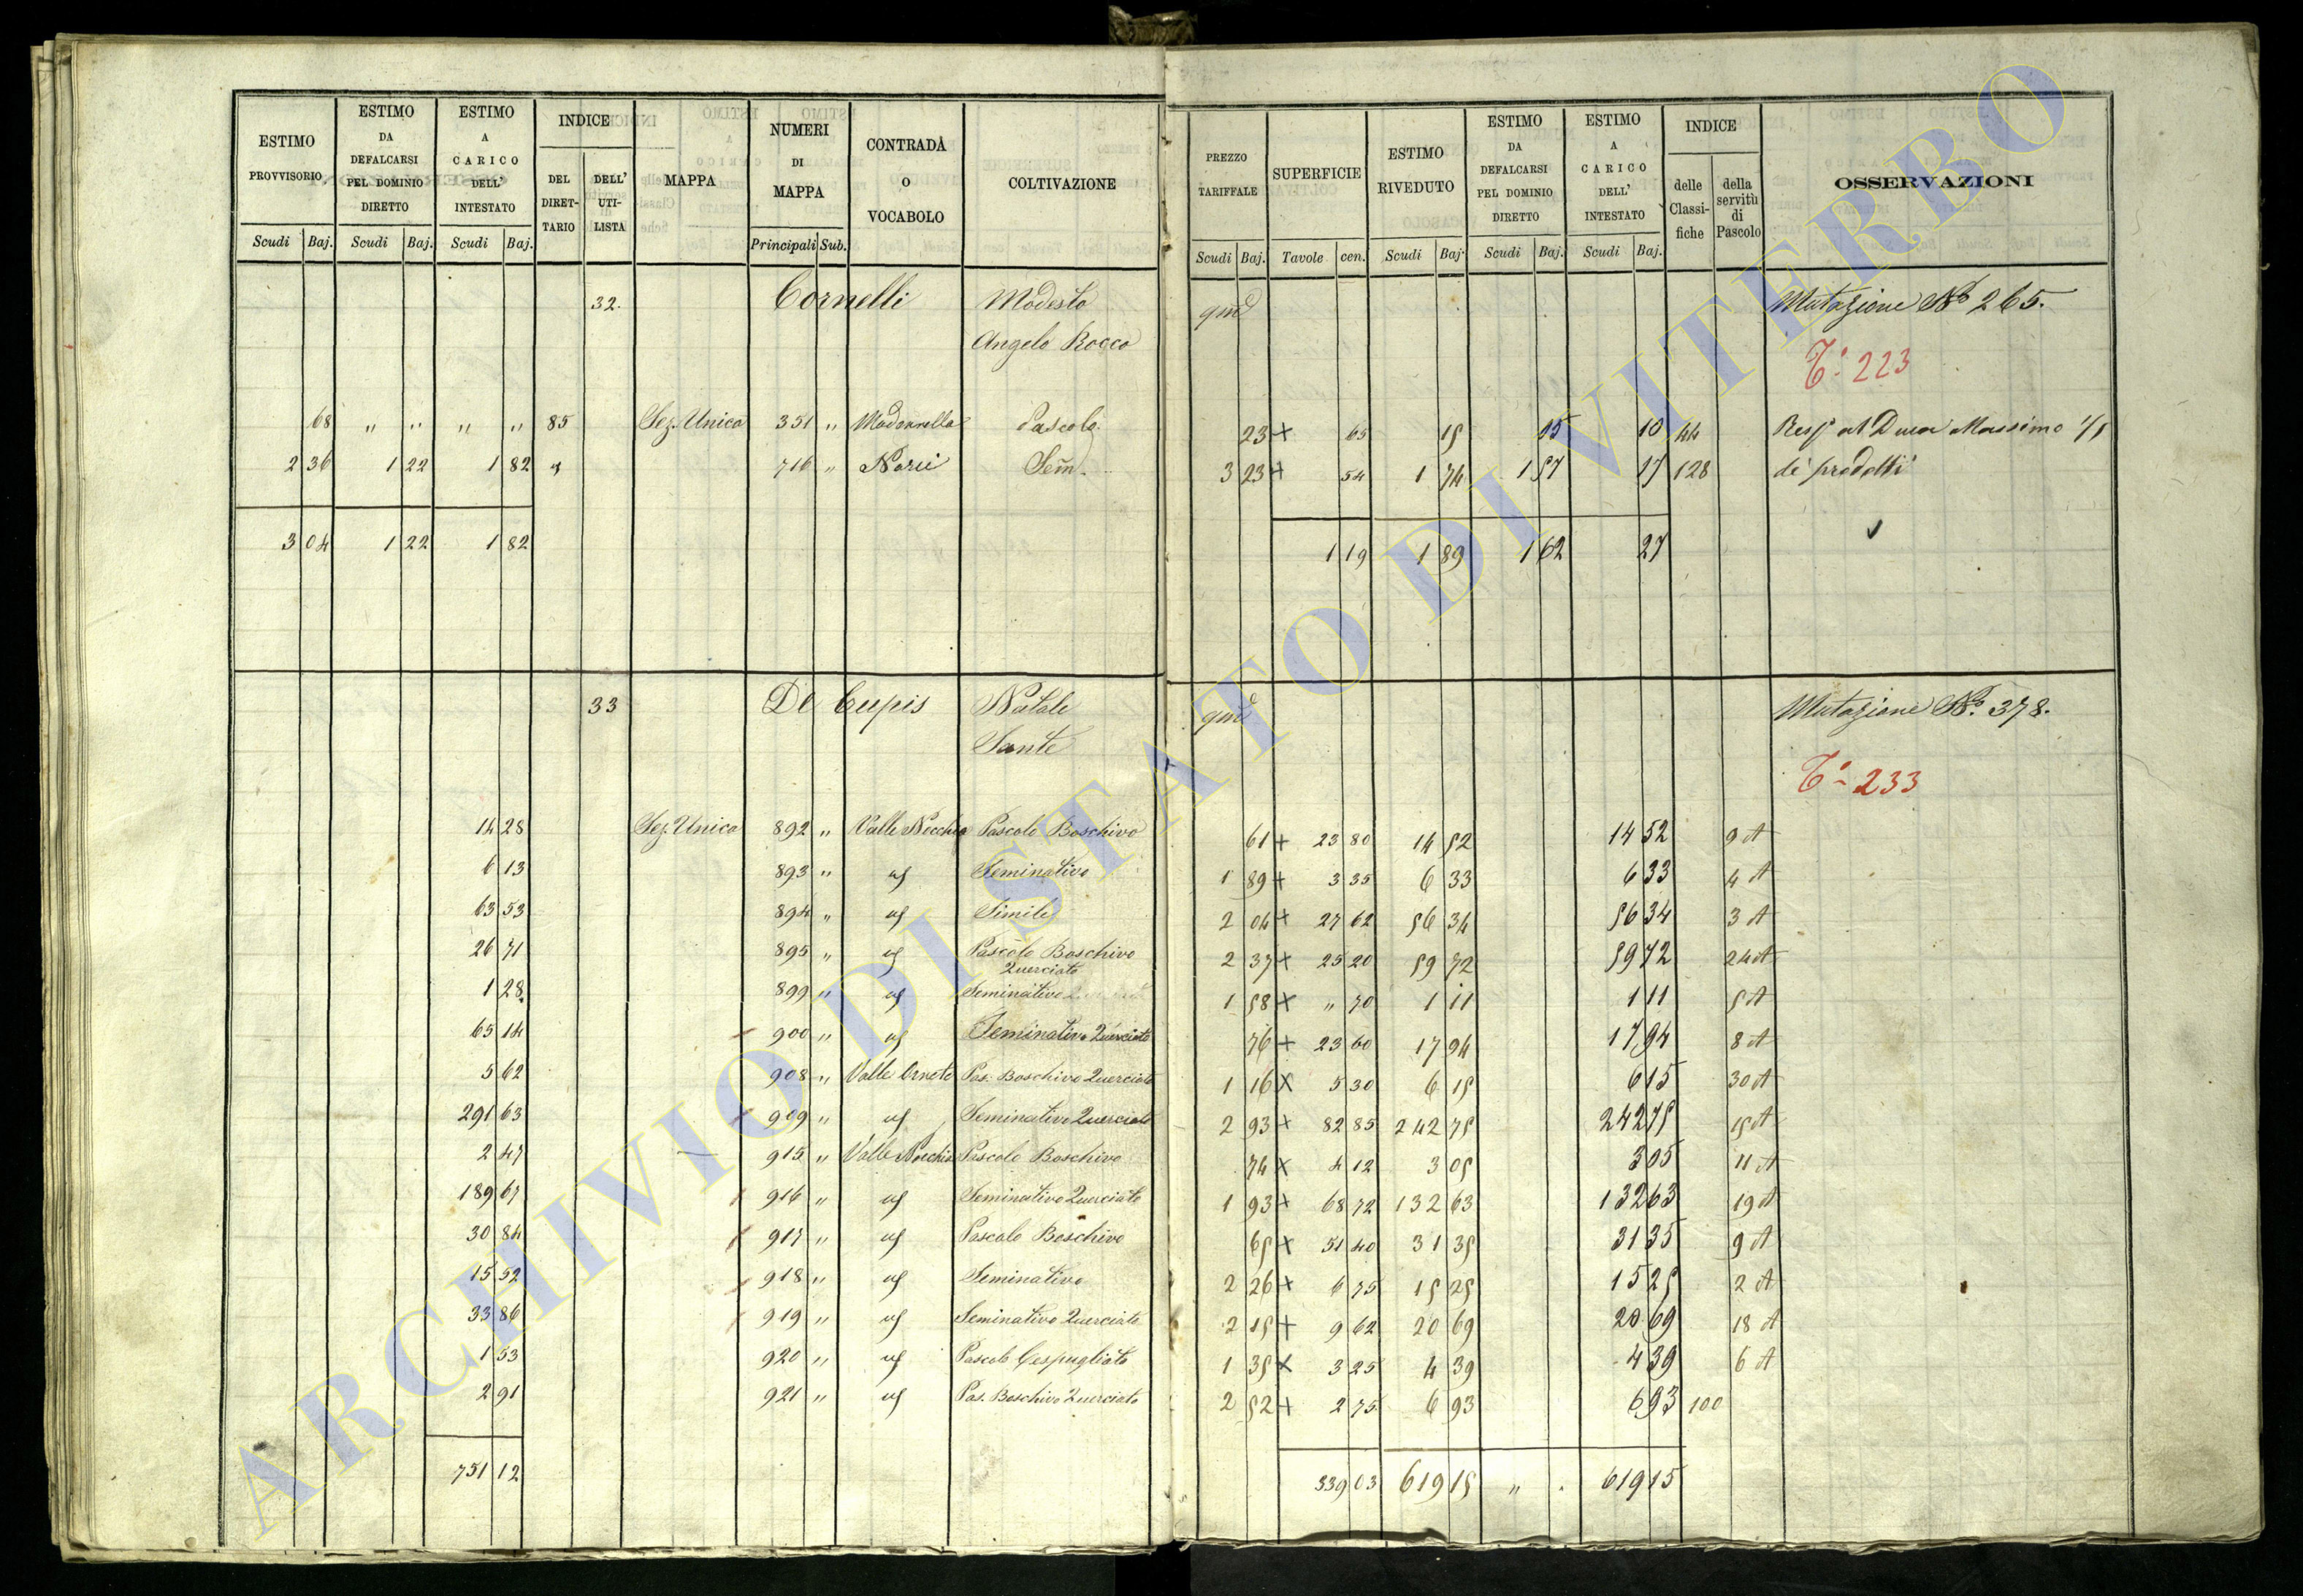 ESTIMO PROVVISORIO | ESTIMO DA DEFALCARSI PEL DOMINIO DIRETTO | ESTIMO A CARICO DELL' INTESTATO | INDICE | MAPPA | NUMERI DI MAPPA | CONTRADA O VOCABOLO | COLTIVAZIONE | PREZZO TARIFFALE | SUPERFICIE | ESTIMO RIVEDUTO | ESTIMO DA DEFALCARSI PEL DOMINIO DIRETTO | ESTIMO A CARICO DELL' INTESTATO | INDICE | OSSERVAZIONI
DEL DIRETTARIO | DELL' UTILISTA | delle Classifiche | della servitù di Pascolo
Scudi Baj. | Scudi Baj. | Scudi Baj. | Principali Sub. | Scudi Baj. | Tavole cen. | Scudi Baj. | Scudi Baj. | Scudi Baj.
32. Cornelli Modesto qm Mutazione No 265.
Angelo Rocco
To 223
68 " " " " 85 Sez. Unica 351 " Madonnella Pascolo 23 + 65 15 15 10 44 al Duca Massimo 1/5
2 36 1 22 1 82 716 " Sem. 3 23 + 54 1 74 1 57 17 128 de' prodotti
3 04 1 22 1 82 1 19 1 89 1 62 27
33 De Cupis Natale qm Mutazione No. 378.
Sante
To 233
14 28 Sez. Unica 892 " Valle Nocchia Pascolo Boschivo 61 + 23 80 14 52 14 52 9 A
6 13 893 " " Seminativo 1 89 + 3 35 6 33 6 33 4 A
63 53 894 " " Simile 2 04 + 27 62 56 34 56 34 3 A
26 71 895 " " Pascolo Boschivo Querciato 2 37 + 25 20 59 72 59 72 24 A
1 28 899 " " Seminativo 1 58 + " 70 1 11 1 11 5 A
65 14 900 " " Seminativo Querciato 76 + 23 60 17 94 17 94 8 A
5 62 908 " Valle Pas. Boschivo Querciato 1 16 X 5 30 6 15 6 15 30 A
291 63 909 " " Seminativo Querciato 2 93 + 82 85 242 75 242 75 15 A
2 47 915 " Valle Nocchia Pascolo Boschivo 74 X 4 12 3 05 3 05 11 A
189 67 916 " " Seminativo Querciato 1 93 + 68 72 132 63 132 63 19 A
30 84 917 " " Pascolo Boschivo 65 + 51 40 31 35 31 35 9 A
15 52 918 " " Seminativo 2 26 + 6 75 15 25 15 25 2 A
33 86 919 " " Seminativo Querciato 2 15 + 9 62 20 69 20 69 18 A
1 53 920 " " Pascolo Cespugliato 1 35 X 3 25 4 39 4 39 6 A
2 91 921 " " Pas. Boschivo Querciato 2 52 + 2 75 6 93 6 93 100
751 12 339 03 619 15 " . 619 15
ARCHIVIO DI STATO DI VITERBO